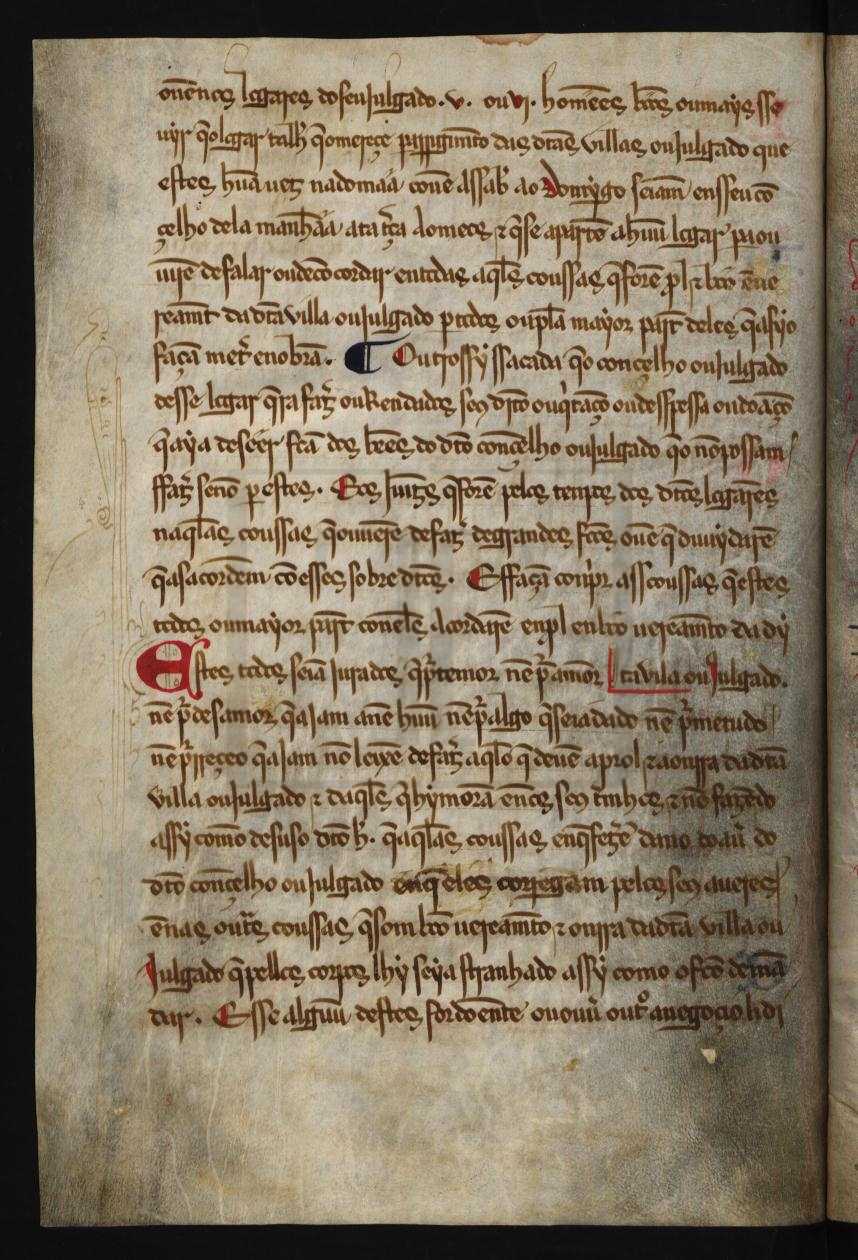 ouẽnos logares do seu julgado . v . ou vj . homẽes bõos ou mays sse
uyr q̃ o logar talh̃ q̃ o mereçe per rregimẽto das dictas villas ou julgado que
estes hũa uez na domaã conuẽ assab̃ ao domỹgo seiam ensseu cõ
çelho dela manhãa ata t̃ça a domeos ⁊ q̃ se apartẽ a huũ logar pa ou
uirẽ de falar ou de cõcordar em todas aq̃las coussas q̃ forẽ prol ⁊ bõo ẽue
reamẽt da dicta villa ou julgado per todos ou pla mayor part deles q̃ assyo
façã met̃ en obra . ¶ Outrossy ssacada q̃ o conçelho ou julgado
desse logar q̃ra faz̃ ou Rendados seg dr̃to ou q̃taçõ ou desspessa ou doaçõ
q̃ aya de seer fctã dos bẽes do dcto conçelho ou julgado q̃ o nõ possam
ffaz̃ senõ per estes . E os juizes q̃ forẽ pelos tenpos dos dctos logares
naq̃las coussas q̃ ouuerẽ de faz̃ de grandes fctos ou ẽ q̃ duuydarẽ
q̃ as acordem cõ esses sobre dctos . E ffaçã conpr as coussas q̃ estes
todos ou mayor part conelles acordarẽ en prol en bõo uereamẽto da dỹ
Estes todos seiã jurados q̃ per temor nẽ per amor | ta vila ou julgado .
nẽ per desamor q̃ ajam a nẽ huũ nẽ per algo q̃ seia dado nẽ per metudo
nẽ per rreçeo q̃ ajam nõ leixẽ de faz̃ aq̃lo q̃ deuẽ a prol ⁊ a onrra da dcta
villa ou julgado ⁊ daq̃les q̃ hy morã ẽnos seus tmhos ⁊ nõ fazẽdo
assy como de suso dcto h̃ . q̃ aq̃las coussas en q̃ fezẽ dano do au̾ do
dcto conçelho ou julgado en q̃ eles corregam pelos seus aueres
ẽnas outs coussas q̃ som bõo uereamẽto ⁊ onrra da dcta villa ou
julgado q̃ pellos corpos lhy seya stranhado assy como o fcto demã
dar . E sse alguũ destes for doente ou ouu̾ outo a negoçio lidi